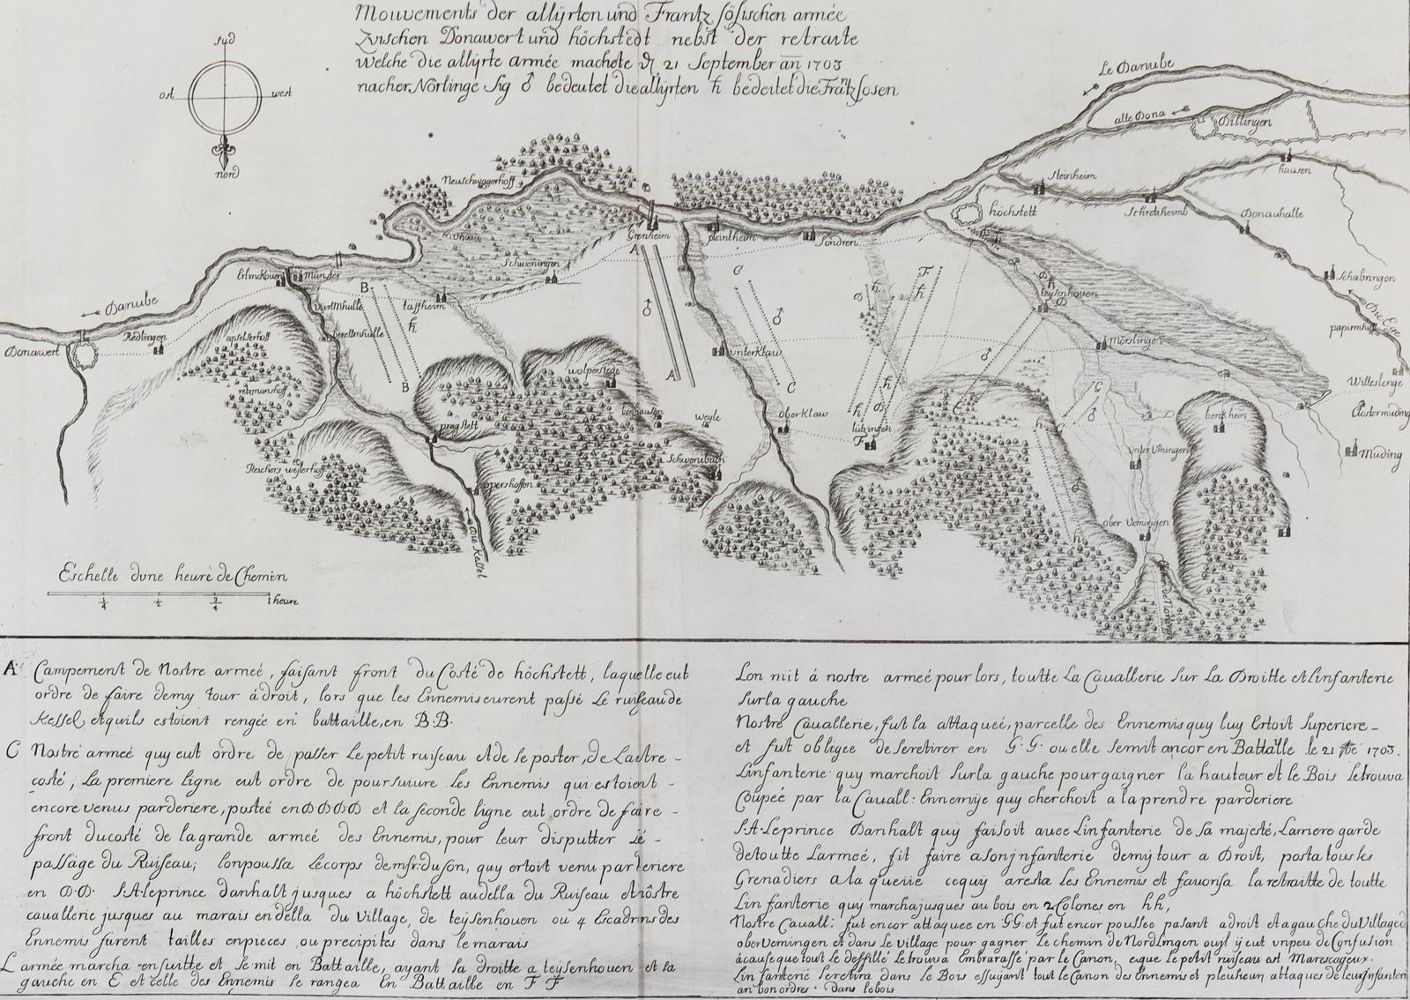 Mouvements der allÿrten und Frantzösischen armée
Zwischen Donawert und höchstedt nebst der retraite
Welche die allÿrte armée machete dn 21 September añ 1703
nacher Nörlinge Sig ♂ bedeutet die allÿrten ħ bedeitet die Frantzosen
sud
ost west
nord
Le Danube
alte Dona
Dillingen
Steinheim
hausen
höchstett
Schretzheimb
Donauhalte
Schabringen
Die Ege
papirmhul
Witteslenge
Clostermuding
Muding
Neuschwogerhoff
Grenheim
pleintheim
Sondren
Schweningen
Erlinckoven
Munster
taffheim
Danube
Donawert
Redlingen
apfelterhoff
reitmanshoff
wolperstede
unterklaw
oberklaw
weyle
Schwenibach
lutzingen
teysenhoven
Mörslingen
berckheim
unter Viningen
ober Veiningen
pragstett
oppershoffen
Reichers weylerhoff
la Kessel
A
A
B
B
C
C
F
F
G
Eschelle dune heure de Chemin
1/4 1/2 3/4 1 heure
A Campement de Nostre armeé, faisant front du Costé de höchstett, laquelle eut
ordre de faire demy tour à droit, lors que les Ennemis eurent passé Le ruiseau de
Kessel, et quils estoient rengée en battaille, en B.B.
C Nostre armeé quy eut ordre de passer Le petit ruiseau et de se poster, de Lautre -
costé, La premiere ligne eut ordre de poursuivre Les Ennemis qui estoient -
encore venus parderiere, posteé en D D D D et la seconde ligne eut ordre de faire -
front du costé de la grande armeé des Ennemis, pour leur disputter le -
passage du Ruiseau; lon poussa Le corps de mr. duson, quy estoit venu parderiere
en D.D. S.A. Le prince danhalt jusques a höchstett audella du Ruiseau et nôstre
cauallerie jusques au marais en della du Village, de teysenhouen ou 4 Escadrns des
Ennemis furent tailles en pieces, ou precipités dans le marais
L armée marcha ensuitte et Se mit en Battaille, ayant sa droitte a teysenhouen et sa
gauche en E et celle des Ennemis Se rangea En Battaille en F F
Lon mit á nostre armeé pour lors, toutte La Cauallerie Sur La Droitte et Linfanterie
Sur la gauche
Nostre Cauallerie, fut la attaqueé, par celle des Ennemis quy luy Ertoit Superiere -
et fut obligee de se retirer en G.G. ou elle se mit ancor en Battalle le 21 7bre 1703.
Linfanterie quy marchoit Sur la gauche pour gaigner la hauteur et le Bois Se trouva
Coupeé par la Cauall: Ennemije quy cherchoit a la prendre parderiere
S.A. Le prince Danhalt quy faisoit auec Linfanterie de Sa majesté, Larriere garde
de toutte Larmeé, fit faire a son jnfanterie demij tour a Droit, posta tous les
Grenadiers a la queue ce quy aresta les Ennemis et fauorisa la retraitte de toutte
Linfanterie quy marcha jusques au bois en 2 Colones en hh,
Nostre Cauall: fut encor attaquee en GG et fut encor poussee pasant a droit et a gauche du Village d,
ober Vemingen et dans Le village pour gagner Le chemin de Nordlingen ouyl ij eut vn peu de Confusion
à cause que tout Le deffillé Se trouva Embarassé par le Canon, e que Le petit ruiseau est Marescageux.
Linfanterie Se retira dans Le Bois essuijant tout le Canon des Ennemis et pleusieurs attaques de leur Jnfanteri
an bon ordres. dans le bois